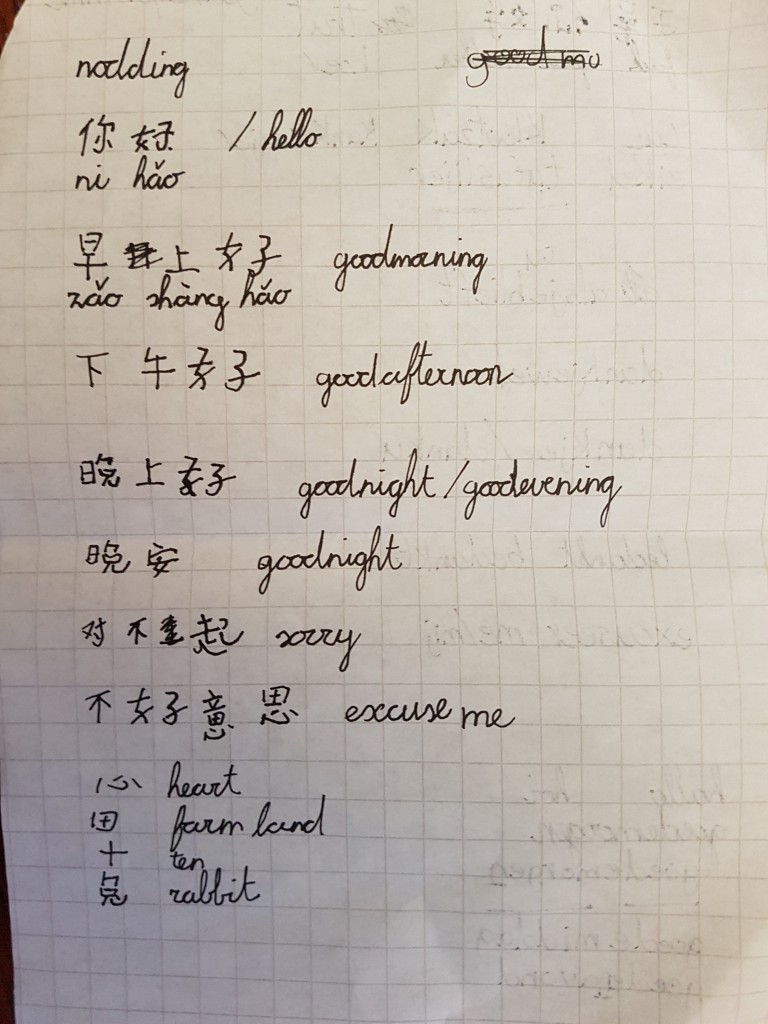 nodding
你好 / hello
ni hǎo
早上好 goodmorning
zǎo shàng hǎo
下午好 goodafternoon
晚上好 goodnight/goodevening
晚安 goodnight
对不起 sorry
不好意思 excuse me
心 heart
田 farm land
十 ten
兔 rabbit